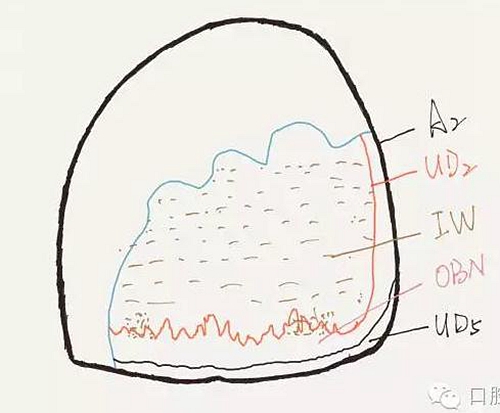 A2
UD2
IW
OBN
UD5
口腔